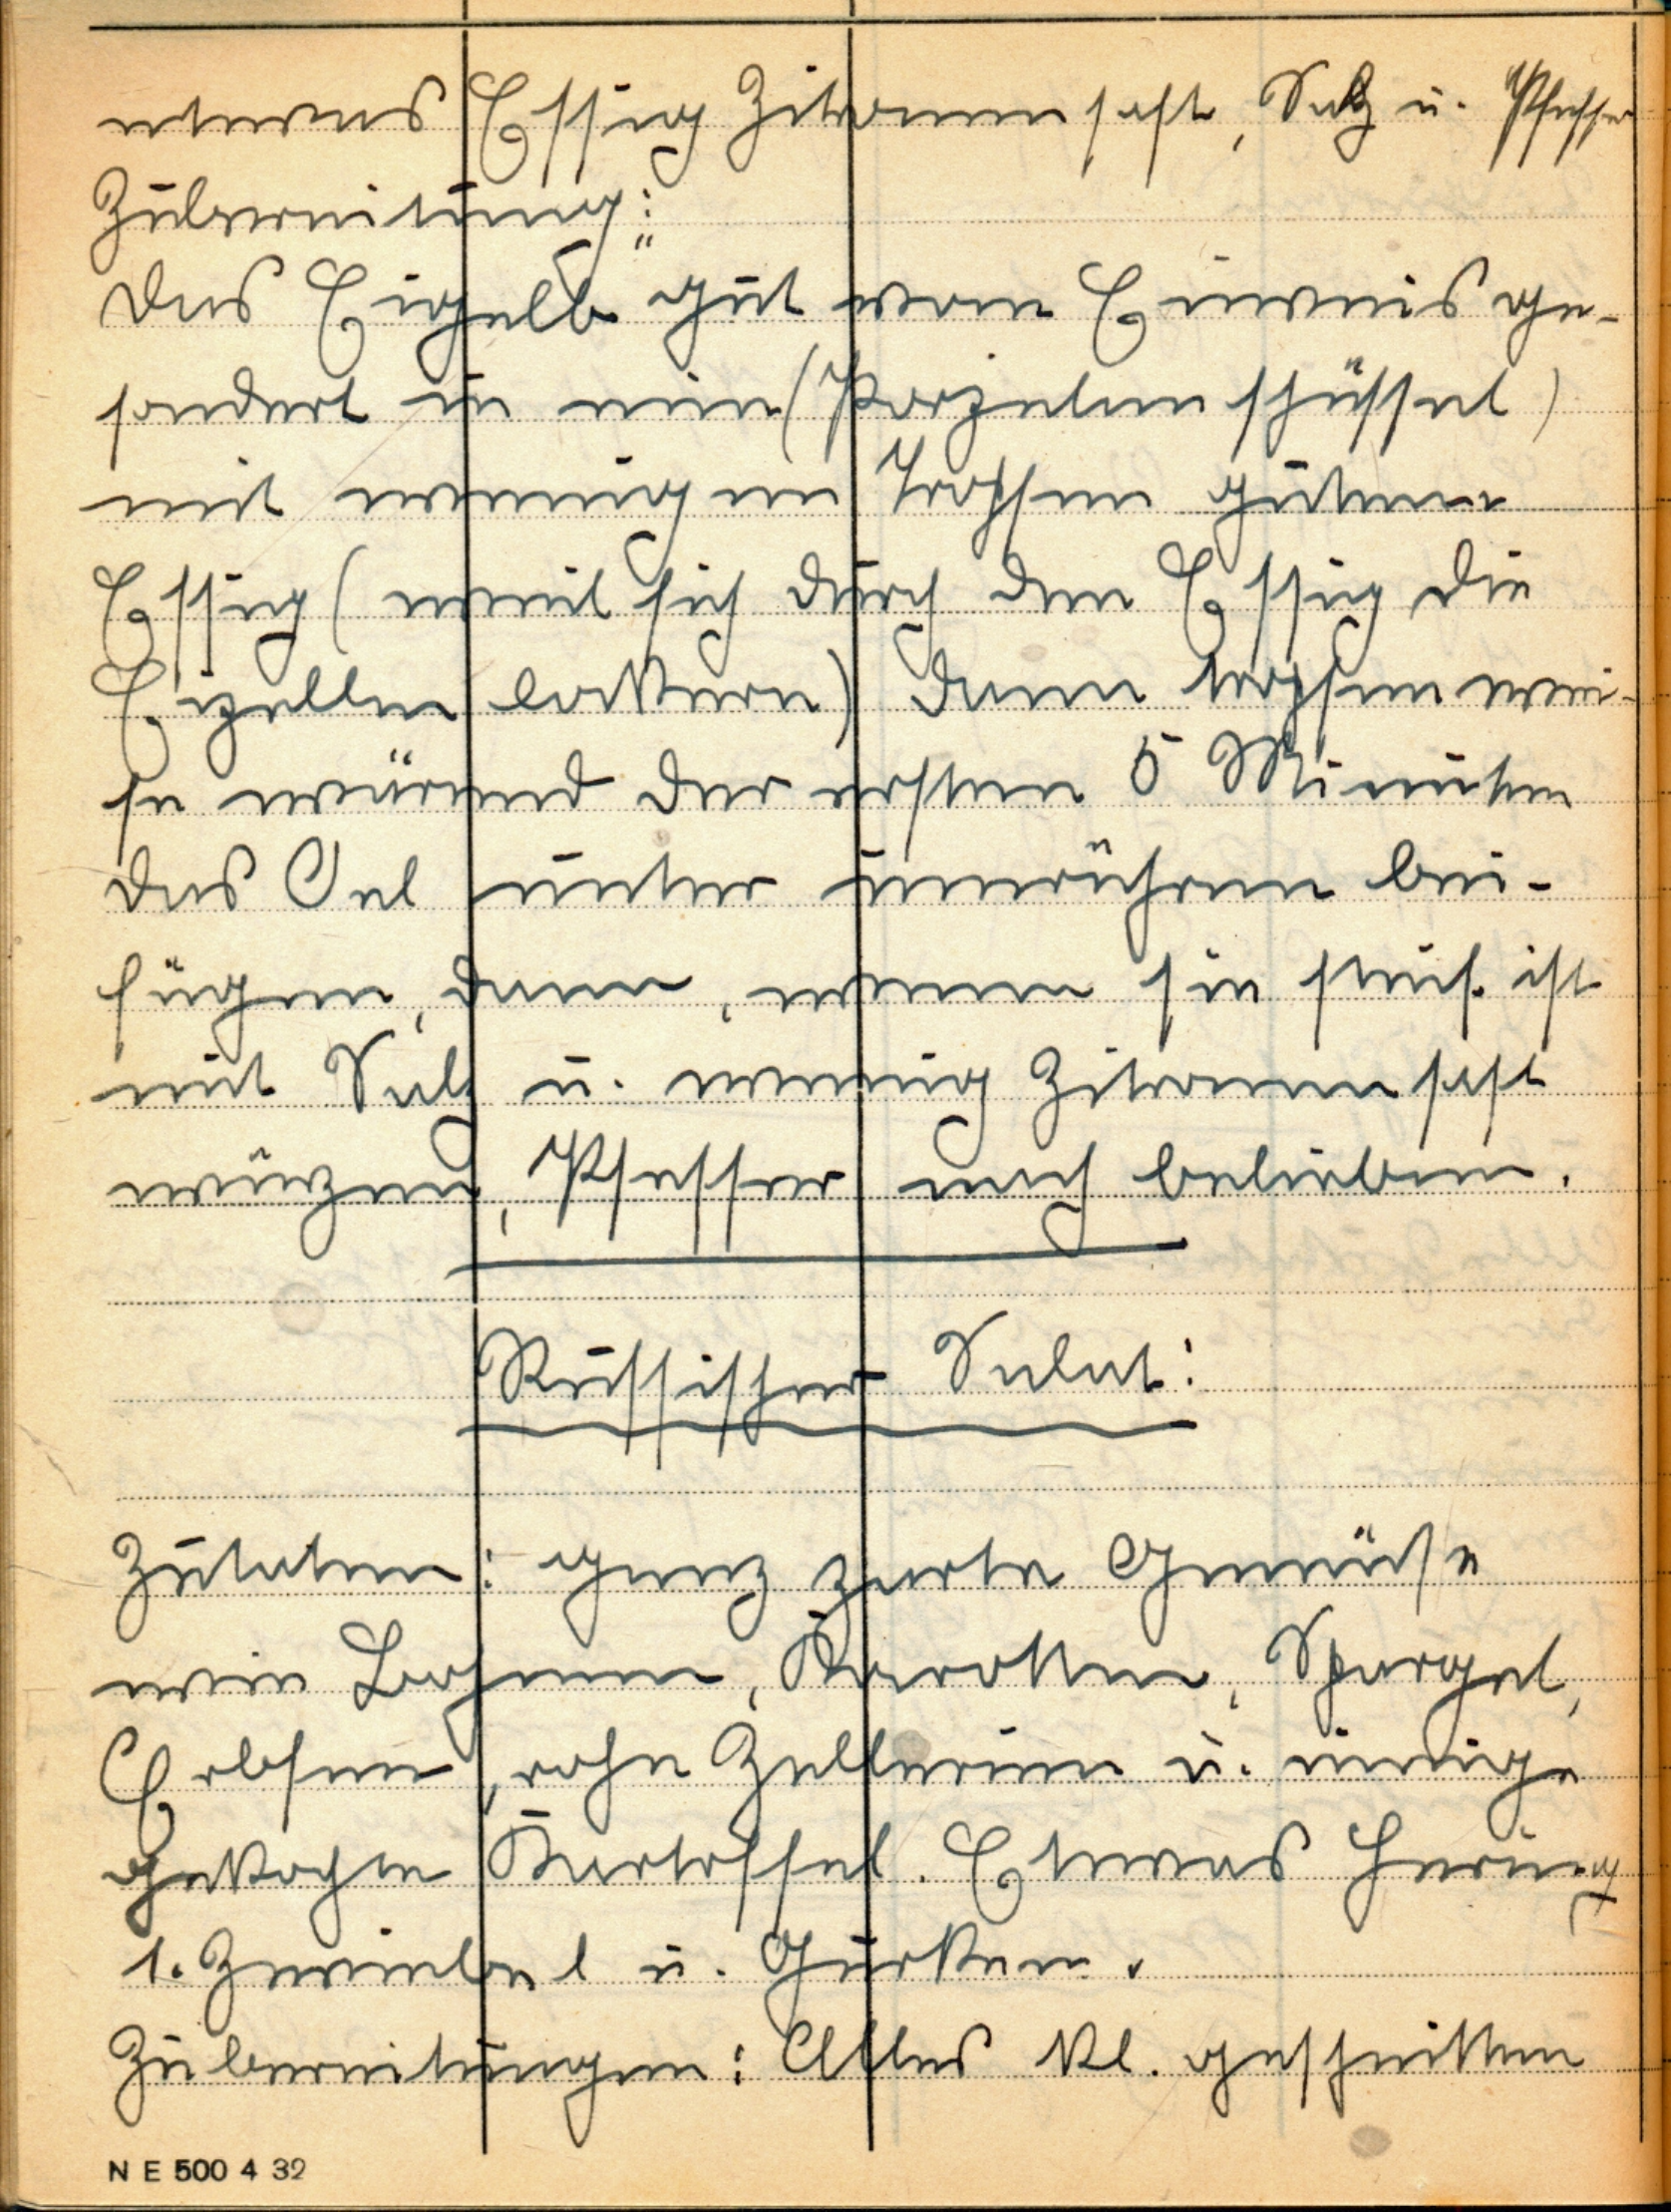 etwas Essig Zitronensaft, Salz u. Pfeffer
Zubereitung:
Das Eigelb gut vom Eiweis ge-
sondert in eine (Porzelanschüssel)
mit wenigen Tropfen gutem
Essig (weil sich durch den Essig die
Eizellen lockern) dann tropfenwei-
se wärend der ersten 5 Minuten
das Oel unter umrühren bei-
fügen, dann, wenn sie steif ist
mit Salz u. wenig Zitronensaft
würzen, Pfeffer nach belieben.
Russischer Salat:
Zutaten: ganz zarte Gemüse
wie Bohnen, Karotten, Spargel,
Erbsen, rohe Zellerien u. einige
gekochte Kartoffel. Etwas Hering
1. Zwiebel u. Gurken.
Zubereitungen: Alles kl. geschnitten
N E 500 4 32